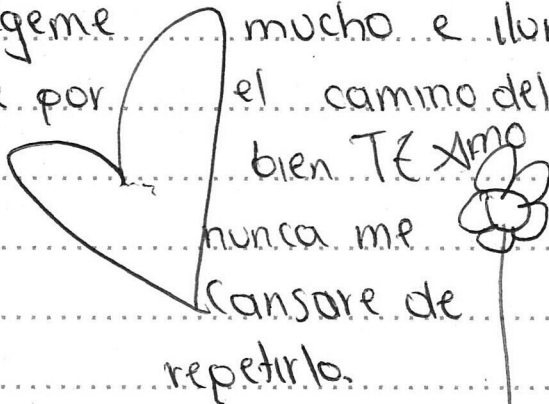 geme mucho e ilu
por el camino del
bien TE Amo
nunca me
Cansare de
repetirlo.